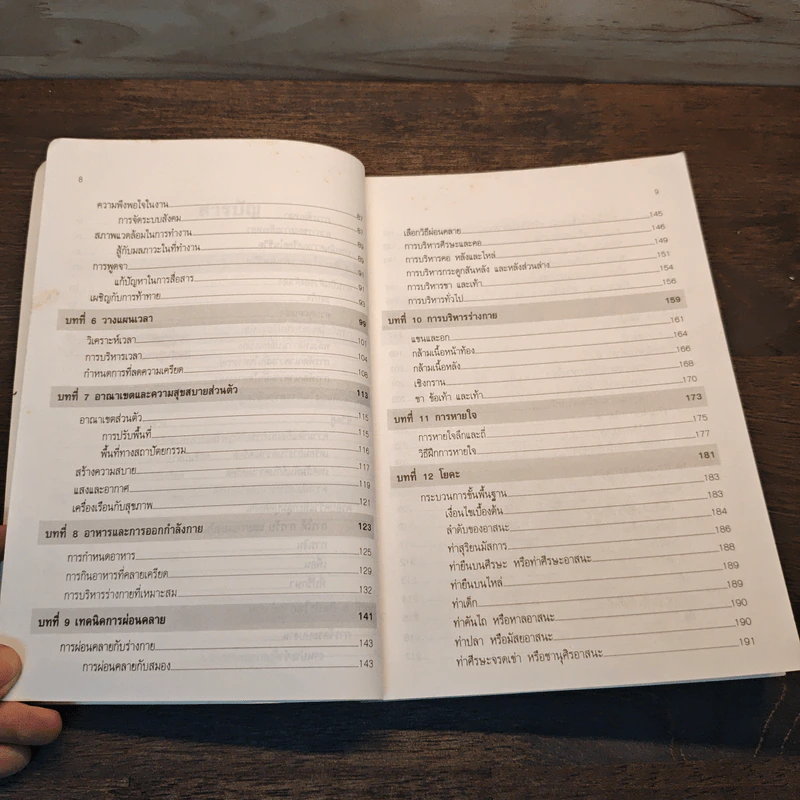 8
ความพึงพอใจในงาน
การจัดระบบสังคม 87
สภาพแวดล้อมในการทำงาน 87
สู้กับมลภาวะในที่ทำงาน 89
การพูดจา 89
แก้ปัญหาในการสื่อสาร 91
เผชิญกับการท้าทาย 91
93
บทที่ 6 วางแผนเวลา 99
วิเคราะห์เวลา 101
การบริหารเวลา 104
กำหนดการที่ลดความเครียด 108
บทที่ 7 อาณาเขตและความสุขสบายส่วนตัว 113
อาณาเขตส่วนตัว 115
การปรับพื้นที่ 115
พื้นที่ทางสถาปัตยกรรม 116
สร้างความสบาย 117
แสงและอากาศ 119
เครื่องเรือนกับสุขภาพ 121
บทที่ 8 อาหารและการออกกำลังกาย 123
การกำหนดอาหาร 125
การกินอาหารที่คลายเครียด 129
การบริหารร่างกายที่เหมาะสม 132
บทที่ 9 เทคนิคการผ่อนคลาย 141
การผ่อนคลายกับร่างกาย 143
การผ่อนคลายกับสมอง 143
9
เลือกวิธีผ่อนคลาย 145
การบริหารศีรษะและคอ 146
การบริหารคอ หลังและไหล่ 149
การบริหารกระดูกสันหลัง และหลังส่วนล่าง 151
การบริหารขา และเท้า 154
การบริหารทั่วไป 156
บทที่ 10 การบริหารร่างกาย 159
แขนและอก 161
กล้ามเนื้อหน้าท้อง 164
กล้ามเนื้อหลัง 166
เชิงกราน 168
ขา ข้อเท้า และเท้า 170
บทที่ 11 การหายใจ 173
การหายใจลึกและถี่ 175
วิธีฝึกการหายใจ 177
บทที่ 12 โยคะ 181
กระบวนการขั้นพื้นฐาน 183
เงื่อนไขเบื้องต้น 183
ลำดับของอาสนะ 184
ท่าสุริยนมัสการ 186
ท่ายืนบนศีรษะ หรือท่าศีรษะอาสนะ 188
ท่ายืนบนไหล่ 189
ท่าเด็ก 189
ท่าคันไถ หรือหาลอาสนะ 190
ท่าปลา หรือมัสยอาสนะ 190
ท่าศีรษะจรดเข่า หรือชานุศิรอาสนะ 191